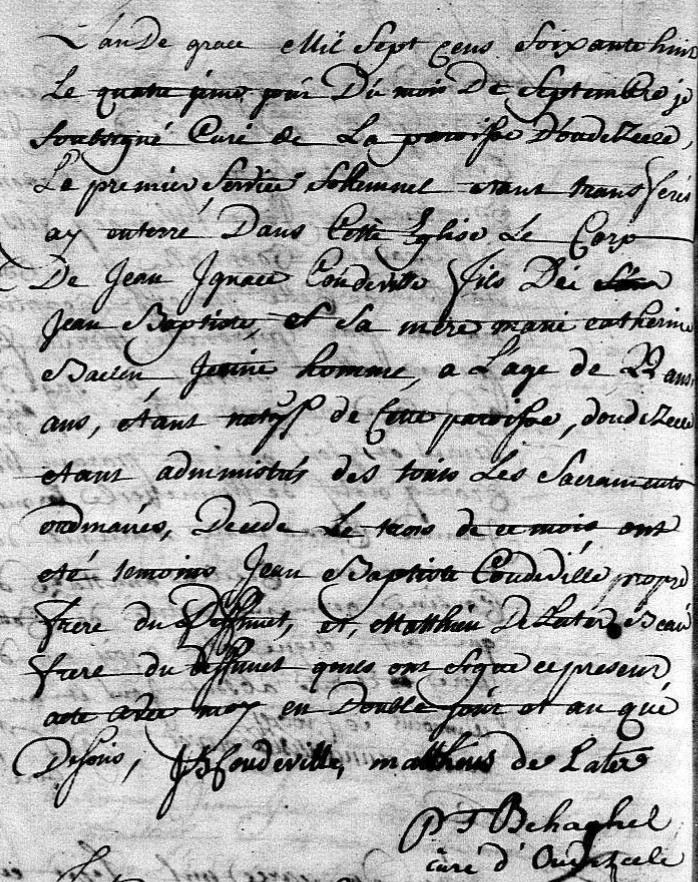 L'an De grace Mil Sept Cens Soixante huit
Le quatrieme jour Du mois De Septembre je
Soubsigné Curé de La paroisse D'oudeZeele,
Le premier Service Sollemnel etant transferés
ay enterré Dans Cette Eglise Le Corp
De Jean Jgnace Coudeville fils De
Jean Baptiste, et Sa mere marie catherine
Baelen, Jeune homme, a L'age de 22 ans
ans, étant natif de Cette paroisse, doudeZeele
etant administrés dès touts Les Sacraments
ordinaires, Decede Le trois de ce mois ont
eté temoins Jean Baptiste Coudeville propre
frere du Deffunct, et, Matthieu De Later Beau
frere du deffunct qui ont Signe ce present
acte avec moy en Double jour et an que
Desous, JB Coudeville, mattheus de Later
P F Behaghel
curé d'Oudezeele